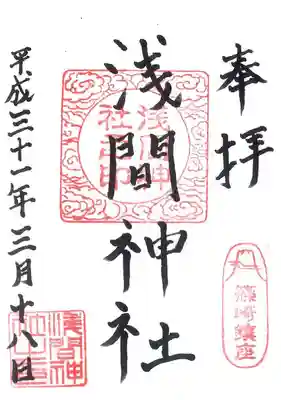 奉拝
篠崎鎮座
浅間神社
浅間神
社之印
平成三十一年三月十八日
浅間神
社之印